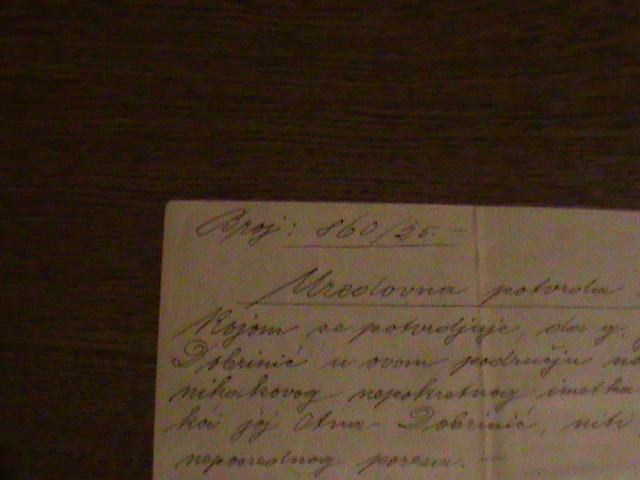 Broj: 860/35.-
Uredovna potvrda
Kojom se potvrdjuje, da g.
Dobrinić u ovom području
nikakovog nepokretnog imetka
joj Ana Dobrinić, niti
neposrednog poreza.-